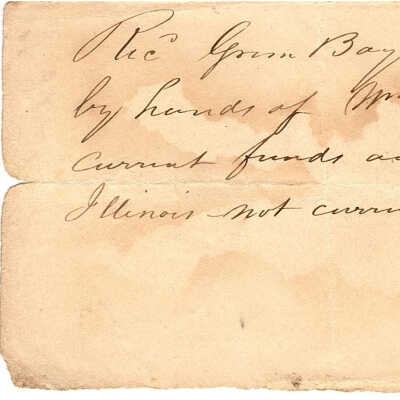 Rec^d Green Bay
by hands of Mr
current funds
Illinois not curre